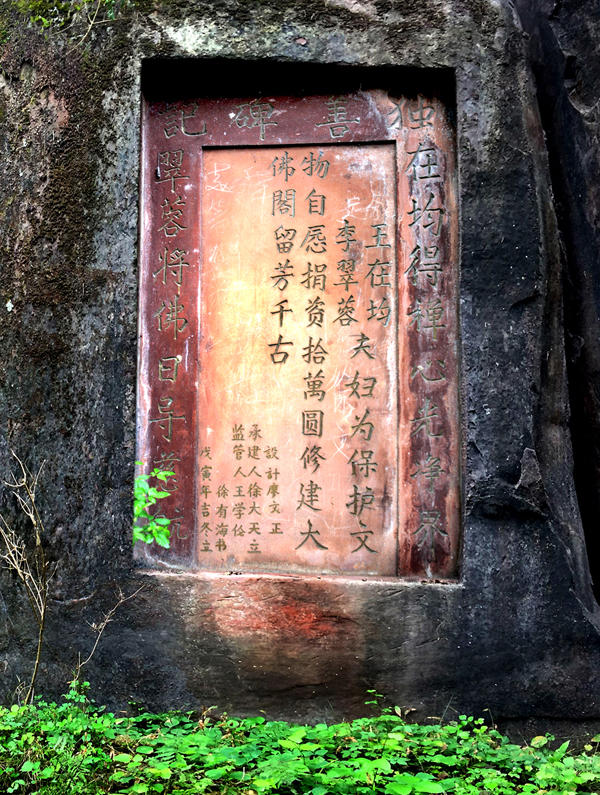 独善碑記
在均得禅心光
王在均
李翠蓉
夫妇为保护文
物自愿捐资拾萬圆修建大
佛閣留芳千古
設計廖文正
承建人徐大天立
监管人王学伦
徐有海书
戊寅年吉冬立
翠蓉将佛日导慈航